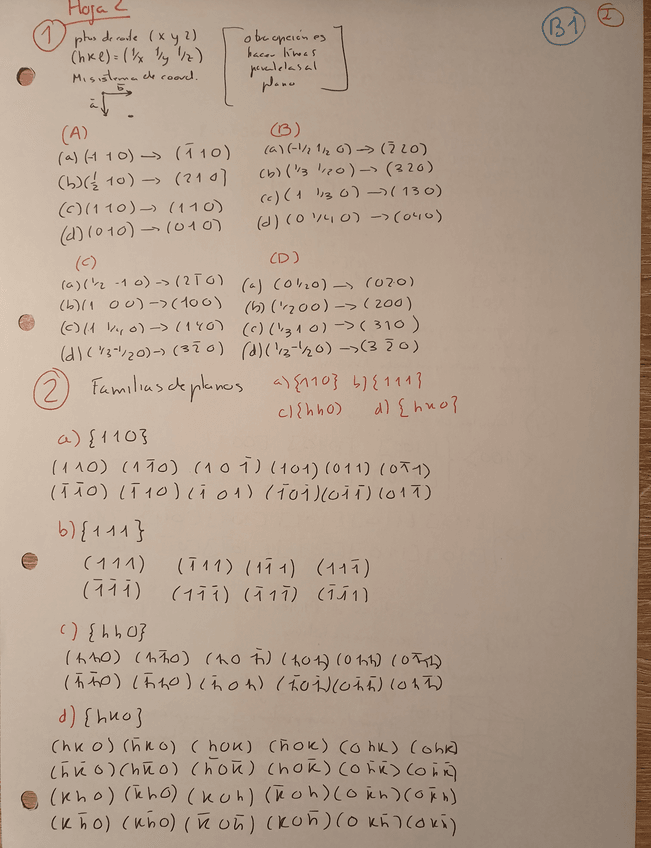 Hoja 2
B1 I
1 ptos de corte (x y z)
(h k l) = (1/x 1/y 1/z)
Mi sistema de coord.
b̄
ā
otra opción es
hacer líneas
paralelas al
plano
(A) (B)
(a) (-1 1 0) → (1̄ 1 0) (a) (-1/2 1/2 0) → (2̄ 2 0)
(b) (1/2 1 0) → (2 1 0) (b) (1/3 1/2 0) → (3 2 0)
(c) (1 1 0) → (1 1 0) (c) (1 1/3 0) → (1 3 0)
(d) (0 1 0) → (0 1 0) (d) (0 1/4 0) → (0 4 0)
(C) (D)
(a) (1/2 -1 0) → (2 1̄ 0) (a) (0 1/2 0) → (0 2 0)
(b) (1 0 0) → (1 0 0) (b) (1/2 0 0) → (2 0 0)
(c) (1 1/4 0) → (1 4 0) (c) (1/3 1 0) → (3 1 0)
(d) (1/3 -1/2 0) → (3 2̄ 0) (d) (1/3 -1/2 0) → (3 2̄ 0)
2 Familias de planos a) {110} b) {111}
c) {hh0) d) {hk0}
a) {110}
(1 1 0) (1 1̄ 0) (1 0 1̄) (1 0 1) (0 1 1) (0 1̄ 1)
(1̄ 1̄ 0) (1̄ 1 0) (1̄ 0 1) (1̄ 0 1̄) (0 1̄ 1̄) (0 1 1̄)
b) {111}
(1 1 1) (1̄ 1 1) (1 1̄ 1) (1 1 1̄)
(1̄ 1̄ 1̄) (1 1̄ 1̄) (1̄ 1 1̄) (1̄ 1̄ 1)
c) {hh0}
(h h 0) (h h̄ 0) (h 0 h̄) (h 0 h) (0 h h) (0 h̄ h)
(h̄ h̄ 0) (h̄ h 0) (h̄ 0 h) (h̄ 0 h̄) (0 h̄ h̄) (0 h h̄)
d) {hk0}
(h k 0) (h̄ k 0) (h 0 k) (h̄ 0 k) (0 h k) (0 h k̄)
(h̄ k̄ 0) (h k̄ 0) (h̄ 0 k̄) (h 0 k̄) (0 h̄ k̄) (0 h̄ k)
(k h 0) (k̄ h 0) (k 0 h) (k̄ 0 h) (0 k h) (0 k̄ h)
(k h̄ 0) (k h̄ 0) (k̄ 0 h̄) (k 0 h̄) (0 k h̄) (0 k h̄)